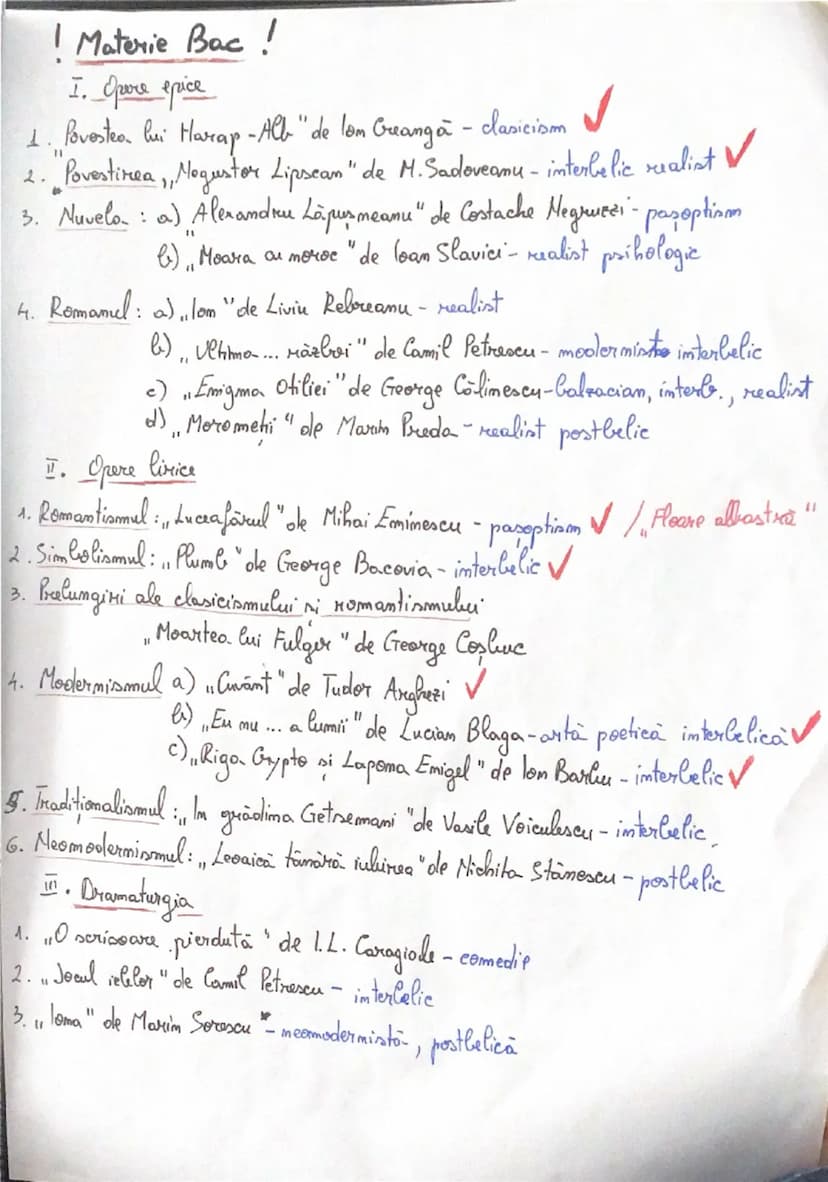 ! Materie Bac !
I. Opere epice
1. „Povestea lui Harap-Alb" de Ion Creangă - clasicism ✓
2. „Povestirea „Negustor Lipscan" de M. Sadoveanu - interbelic realist ✓
3. Nuvela : a) „Alexandru Lăpușneanu" de Costache Negruzzi - pașoptism
b) „Moara cu noroc" de Ioan Slavici - realist psihologic
4. Romanul : a) „Ion" de Liviu Rebreanu - realist
b) „Ultima ... război" de Camil Petrescu - modernist interbelic
c) „Enigma Otiliei" de George Călinescu - balzacian, interb., realist
d) „Moromeții" de Marin Preda - realist postbelic
II. Opere lirice
1. Romantismul : „Luceafărul" de Mihai Eminescu - pașoptism ✓ / „Floare albastră"
2. Simbolismul : „Plumb" de George Bacovia - interbelic ✓
3. Prelungiri ale clasicismului și romantismului
„Moartea lui Fulger" de George Coșbuc
4. Modernismul a) „Cuvânt" de Tudor Arghezi ✓
b) „Eu nu ... a lumii" de Lucian Blaga - artă poetică interbelică ✓
c) „Riga Crypto și Lapona Enigel" de Ion Barbu - interbelic ✓
5. Tradiționalismul : „In grădina Getsemani" de Vasile Voiculescu - interbelic
6. Neomodernismul : „Leoaică tânără iubirea" de Nichita Stănescu - postbelic
III. Dramaturgia
1. „O scrisoare pierdută" de I.L. Caragiale - comedie
2. „Jocul ielelor" de Camil Petrescu - interbelic
3. „Iona" de Marin Sorescu * - neomodernistă, postbelică